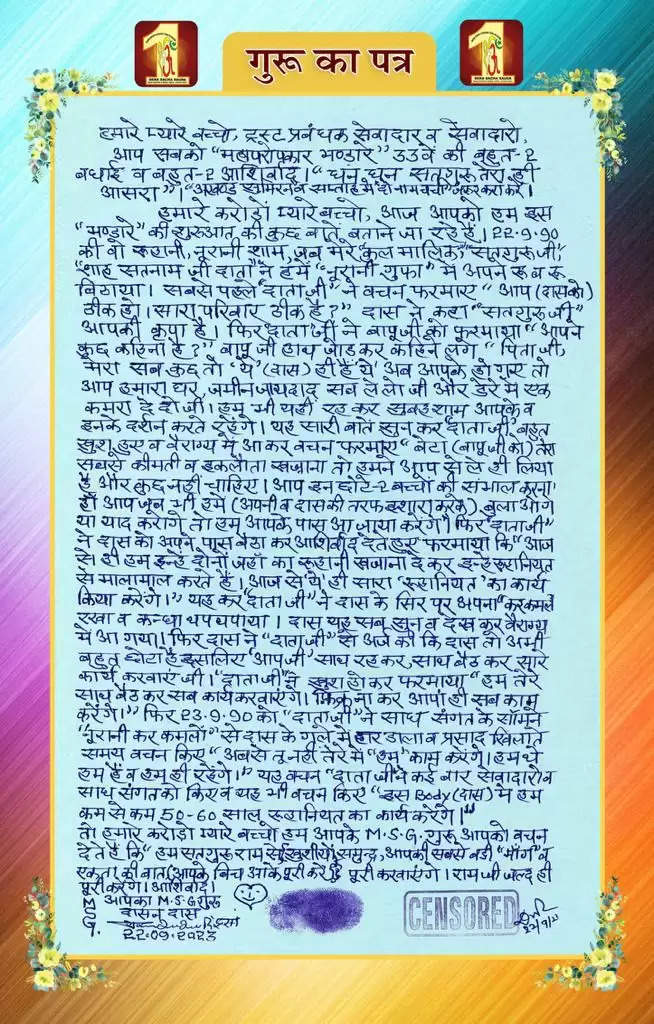 गुरू का पत्र
हमारे प्यारे बच्चो, ट्रस्ट प्रबंधक सेवादार व सेवादारो,
आप सबको "महापरोपकार भण्डारे" 33वें की बहुत-2
बधाई व बहुत-2 आशिर्वाद। "धन धन सतगुरू तेरा ही
आसरा"। "अखण्ड सुमिरन व सप्ताह में दो नामचर्चा" जरूर करा करें।
हमारे करोड़ों प्यारे बच्चो, आज आपको हम इस
"भण्डारे" की शुरुआत की कुछ बातें बताने जा रहे हैं। 22.9.90
की वो रूहानी, नूरानी शाम, जब मेरे "कुल मालिक" "सतगुरू जी"
"शाह सतनाम जी दाता" ने हमें "नूरानी गुफा" में अपने रूबरू
बिठाया। सबसे पहले "दाता जी" ने वचन फरमाए "आप (दास को)
ठीक हो। सारा परिवार ठीक है?" दास ने कहा "सतगुरू जी"
आपकी कृपा है। फिर दाता जी ने बापू जी को फरमाया "आपने
कुछ कहिना है?" बापू जी हाथ जोड़ कर कहिने लगे "पिता जी,
मेरा सब कुछ तो 'ये' (दास) ही है 'ये' अब आपके हो गए तो
आप हमारा घर, जमीन जायदाद सब ले लो जी और डेरे में एक
कमरा दे दो जी। हम भी यहीं रह कर सुबह शाम आपके व
इनके दर्शन करते रहेंगे। यह सारी बातें सुन कर 'दाता जी' बहुत
खुश हुए व वैराग्य में आ कर वचन फरमाए "बेटा (बापू जी को) तेरा
सबसे कीमती व इकलौता खजाना तो हमने आप से ले ही लिया
है और कुछ नहीं चाहिए। आप इन छोटे-2 बच्चों की संभाल करना
हाँ आप जब भी हमें (अपनी व दास की तरफ इशारा करके) बुलाओगे
या याद करोगे तो हम आपके पास आ जाया करेंगे। फिर "दाता जी"
ने दास को अपने पास बैठा कर आशिर्वाद देते हुए फरमाया कि "आज
से ही हम इन्हें दोनों जहाँ का रूहानी खजाना दे कर इन्हें रूहानियत
से मालामाल करते हैं। आज से 'ये' ही सारा 'रूहानियत' का कार्य
किया करेंगे।" यह कर "दाता जी" ने दास के सिर पर अपना "कर कमल"
रखा व कन्धा थपथपाया। दास यह सब सुन व देख कर वैराग्य
में आ गया। फिर दास ने "दाता जी" से अर्ज की कि दास तो अभी
बहुत छोटा है इसलिए 'आप जी' साथ रह कर, साथ बैठ कर सारे
कार्य करवाएं जी। "दाता जी" ने खुश हो कर फरमाया "हम तेरे
साथ बैठ कर सब कार्य करवाएंगे। फिक्र ना कर आपां ही सब काम
करेंगे।" फिर 23.9.90 को "दाता जी" ने साध संगत के सामने
"नूरानी कर कमलों" से दास के गले में हार डाला व प्रसाद खिलाते
समय वचन किए "अब से तू नहीं तेरे में "हम" काम करेंगे। हम थे
हम हैं व हम ही रहेंगे।" यह वचन "दाता जी" ने कई बार सेवादारों व
साध संगत को किए व यह भी वचन किए "इस Body (दास) में हम
कम से कम 50-60 साल रूहानियत का कार्य करेंगे।"
तो हमारे करोड़ों प्यारे बच्चो हम आपके M.S.G. गुरू आपको वचन
देते हैं कि "हम सतगुरू राम से खुशीयों समुन्द्र, आपकी सबसे बड़ी "माँग" व
एकता की बात (आपके बिच आके पूरी करें) पूरी करवाएंगे। राम जी जल्द ही
पूरी करेंगे। आशिर्वाद।
आपका M.S.G. गुरू
दासन दास
M
S
G.
22.09.2023
CENSORED